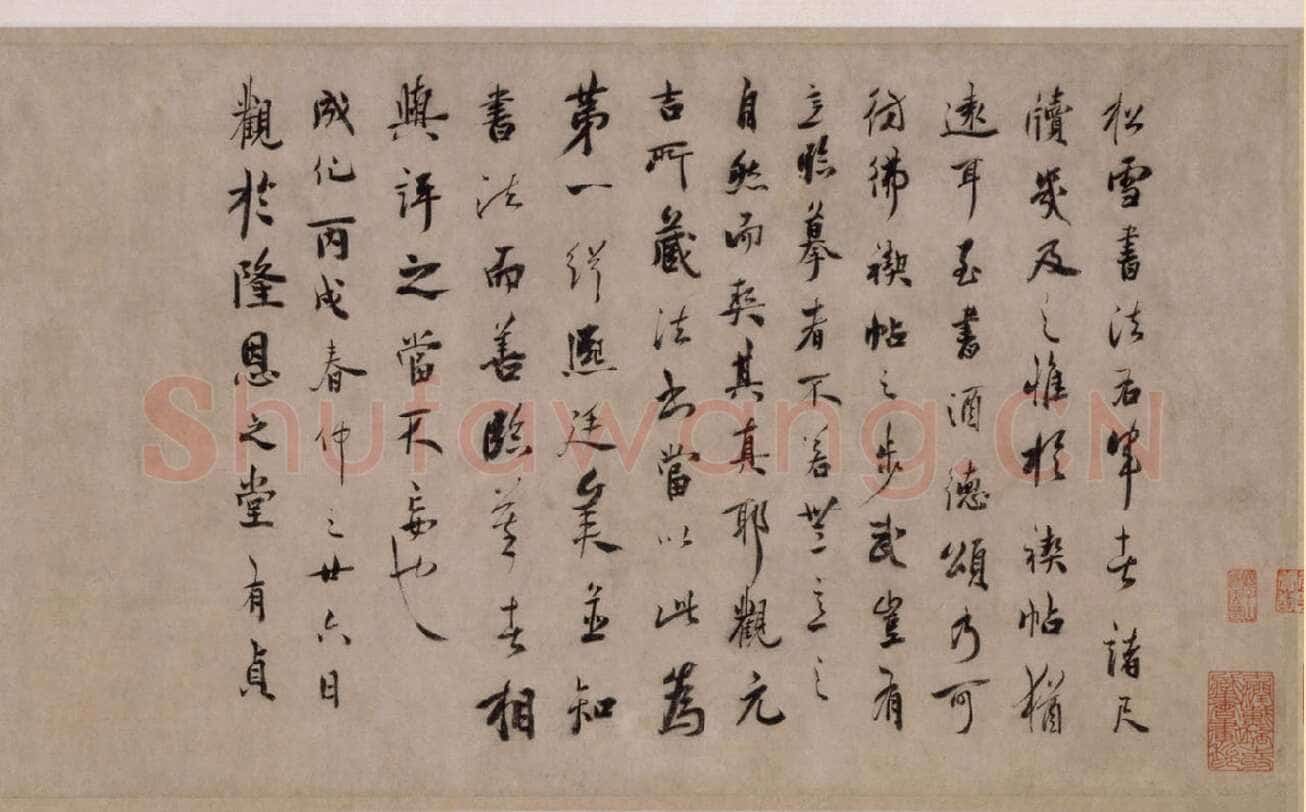 松雪書法右軍者諸尺
牘幾及之惟於禊帖猶
遠耳至書酒德頌乃可
彷彿禊帖之步武豈有
意臨摹者不若無意之
自然而契其真耶觀元
吉所藏法書當以此為
第一繹熙廷美並知
書法而善臨摹者相
與評之當不妄也
成化丙戌春仲之廿六日
觀於隆恩之堂有貞
Shufawang.CN